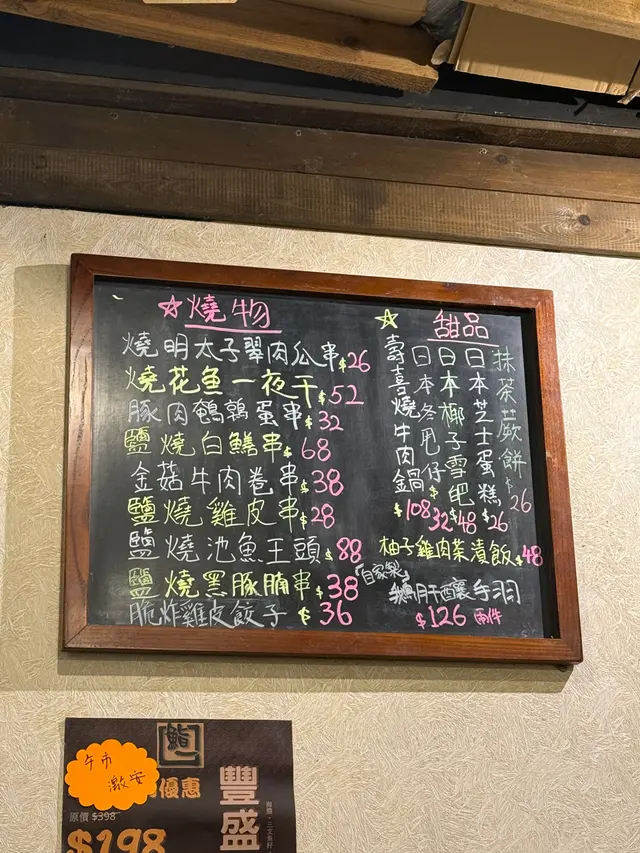 ☆燒物
燒明太子翠肉瓜串$26
燒花魚一夜干$52
豚肉鵪鶉蛋串$32
鹽燒白鱔串$68
金菇牛肉卷串$38
鹽燒雞皮串$28
鹽燒池魚王頭$88
鹽燒黑豚腩串$38
脆炸雞皮餃子$36
☆甜品
抹茶蕨餅$26
日本芝士蛋糕$26
日本椰子雪吧$48
日本冬甩仔$32
壽喜燒牛肉鍋$108
柚子雞肉茶漬飯$48
「自家製」
鵝肝釀手羽
$126 兩件
鮨
午市
激安
優惠
原價$398
$198
豐盛